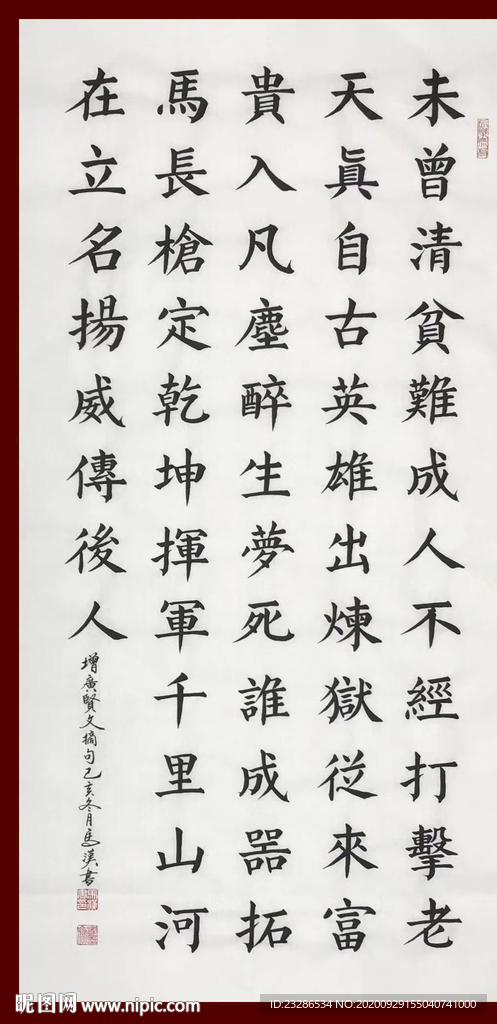 未曾清貧難成人不經打擊老
天真自古英雄出煉獄從來富
貴入凡塵醉生夢死誰成器拓
馬長槍定乾坤揮軍千里山河
在立名揚威傳後人
增廣賢文摘句己亥冬月馬漢書
昵图网 www.nipic.com
ID:23286534 NO:20200929155040741000